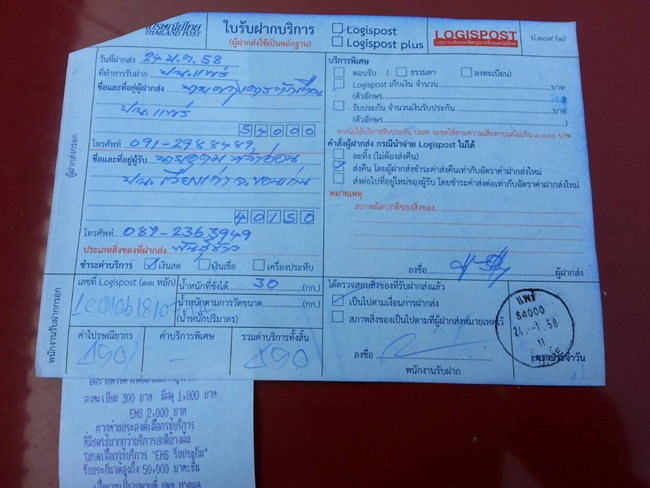 ไปรษณีย์ไทย
THAILAND POST
ใบรับฝากบริการ
(ผู้ฝากส่งใช้เป็นหลักฐาน)
Logispost
Logispost plus
LOGISPOST
ป.๓๐๙ (๘)
วันที่ฝากส่ง 24 ม.ค. 58
ที่ทำการรับฝาก ปณ.แพร่
ชื่อและที่อยู่ผู้ฝากส่ง
ปณ.แพร่
54000
โทรศัพท์ 091-2984489
ชื่อและที่อยู่ผู้รับ
ปณ.เวียงเก่า จ.ขอนแก่น
40150
โทรศัพท์ 089-2363949
ประเภทสิ่งของที่ฝากส่ง พันธุ์ข้าว
ชำระค่าบริการ เงินสด เงินเชื่อ เครื่องประทับ
ผู้ฝากส่งกรอก
บริการพิเศษ
ตอบรับ ( ธรรมดา ลงทะเบียน)
Logispost เก็บเงิน จำนวน บาท
(ตัวอักษร )
รับประกัน จำนวนเงินรับประกัน บาท
(ตัวอักษร )
คำสั่งผู้ฝากส่ง กรณีนำจ่าย Logispost ไม่ได้
ละทิ้ง (ไม่ต้องส่งคืน)
ส่งคืน โดยผู้ฝากส่งชำระค่าส่งคืนเท่ากับอัตราค่าฝากส่งใหม่
ส่งต่อไปที่อยู่ใหม่ของผู้รับ โดยชำระค่าส่งต่อเท่ากับอัตราค่าฝากส่งใหม่
หมายเหตุ
สภาพผิดปกติของสิ่งของ
ลงชื่อ ผู้ฝากส่ง
เลขที่ Logispost (๑๓ หลัก)
น้ำหนักที่ชั่งได้ 30 (กก.)
น้ำหนักตามการวัดขนาด (กก.)
(น้ำหนักปริมาตร)
ค่าไปรษณียากร
ค่าบริการพิเศษ
รวมค่าบริการทั้งสิ้น
190
-
190
พนักงานรับฝากกรอก
ได้ตรวจสอบสิ่งของที่รับฝากส่งแล้ว
เป็นไปตามเงื่อนการฝากส่ง
สภาพสิ่งของเป็นไปตามที่ผู้ฝากส่งหมายเหตุไว้
ลงชื่อ
พนักงานรับฝาก
แพร่
54000
24 -1. 58
11
ตราประจำวัน
ลงทะเบียน 300 บาท พัสดุ 1,000 บาท
EMS 2,000 บาท
หากท่านประสงค์เลือกใช้บริการ
โปรดเลือกใช้บริการ "EMS รับประกัน"
รับประกันได้สูงถึง 50,000 บาท